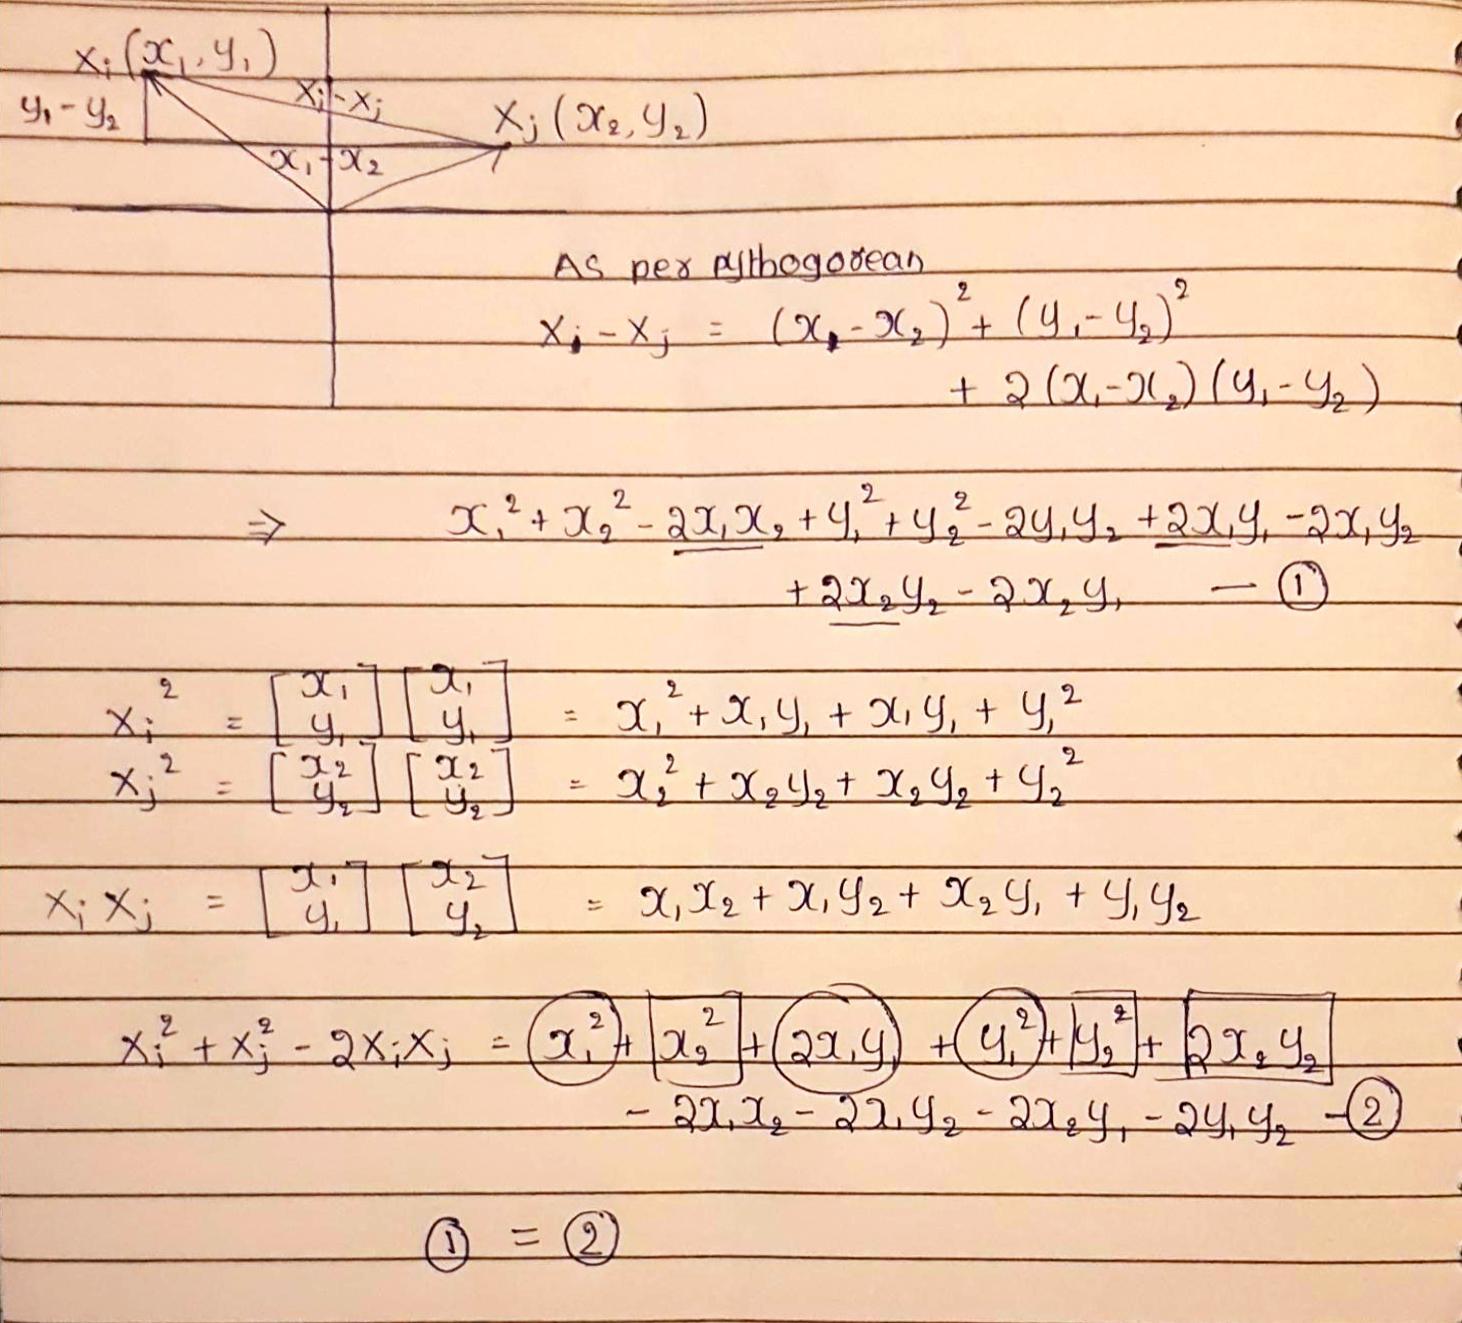 Xᵢ (x₁, y₁)
Xᵢ - Xⱼ
y₁ - y₂
Xⱼ (x₂, y₂)
x₁ - x₂
As per pythogorean
Xᵢ - Xⱼ = (x₁ - x₂)² + (y₁ - y₂)²
+ 2 (x₁ - x₂) (y₁ - y₂)
⇒ x₁² + x₂² - 2x₁x₂ + y₁² + y₂² - 2y₁y₂ + 2x₁y₁ - 2x₁y₂
+ 2x₂y₂ - 2x₂y₁ — ①
Xᵢ² = [x₁ y₁] [x₁ y₁] = x₁² + x₁y₁ + x₁y₁ + y₁²
Xⱼ² = [x₂ y₂] [x₂ y₂] = x₂² + x₂y₂ + x₂y₂ + y₂²
Xᵢ Xⱼ = [x₁ y₁] [x₂ y₂] = x₁x₂ + x₁y₂ + x₂y₁ + y₁y₂
Xᵢ² + Xⱼ² - 2XᵢXⱼ = x₁² + x₂² + 2x₁y₁ + y₁² + y₂² + 2x₂y₂
- 2x₁x₂ - 2x₁y₂ - 2x₂y₁ - 2y₁y₂ - ②
① = ②